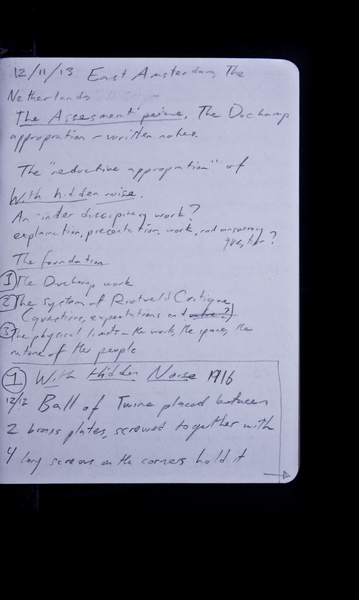 12/11/13 East Amsterdam, The
Netherlands
The Assesment peice, The Duchamp
appropration - written notes.
The "reductive appropration" of
With hidden noise.
An inter discipinary work?
explanation, presentation, work, and answering
question?
The foundation
1 The Duchamp work
2 The system of Rietveld Critique
(questions, expectations and
3 The physical limits - the work, the space, the
nature of the people
1. With Hidden Noise 1916
12/12 Ball of Twine placed between
2 brass plates, screwed together with
4 long screws on the corners hold it